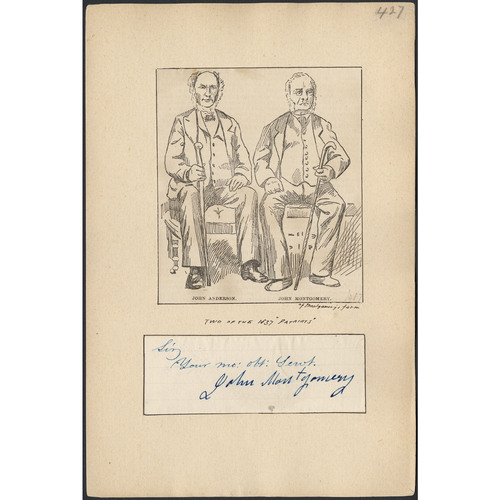 427
JOHN ANDERSON. JOHN MONTGOMERY.
of Montgomery's farm
TWO OF THE 1837 "PATRIOTS"
Sir
Your mo: obt: Servt.
John Montgomery